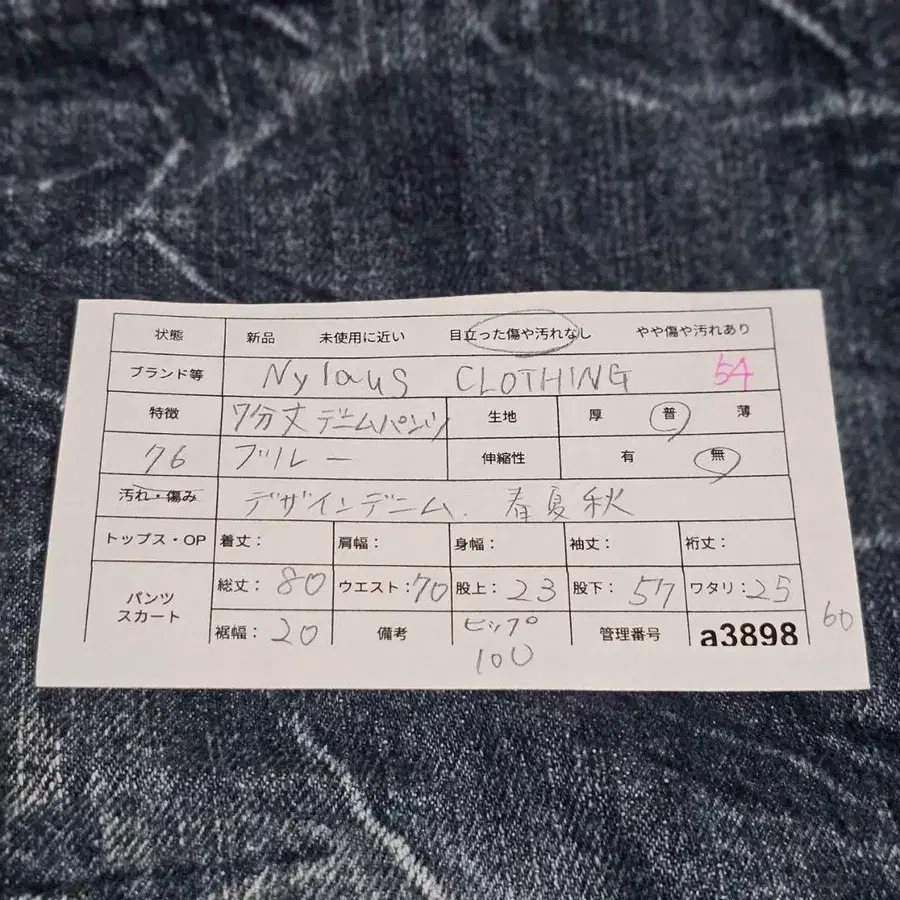 状態 新品 未使用に近い 目立った傷や汚れなし やや傷や汚れあり
ブランド等 Nylaus CLOTHING 54
特徴 7分丈デニムパンツ 生地 厚 普 薄
76 ブルー 伸縮性 有 無
汚れ・傷み デザインデニム. 春夏秋
トップス・OP 着丈： 肩幅： 身幅： 袖丈： 裄丈：
パンツ スカート 総丈：80 ウエスト：70 股上：23 股下：57 ワタリ：25
裾幅：20 備考 ヒップ 100 管理番号 a3898 60